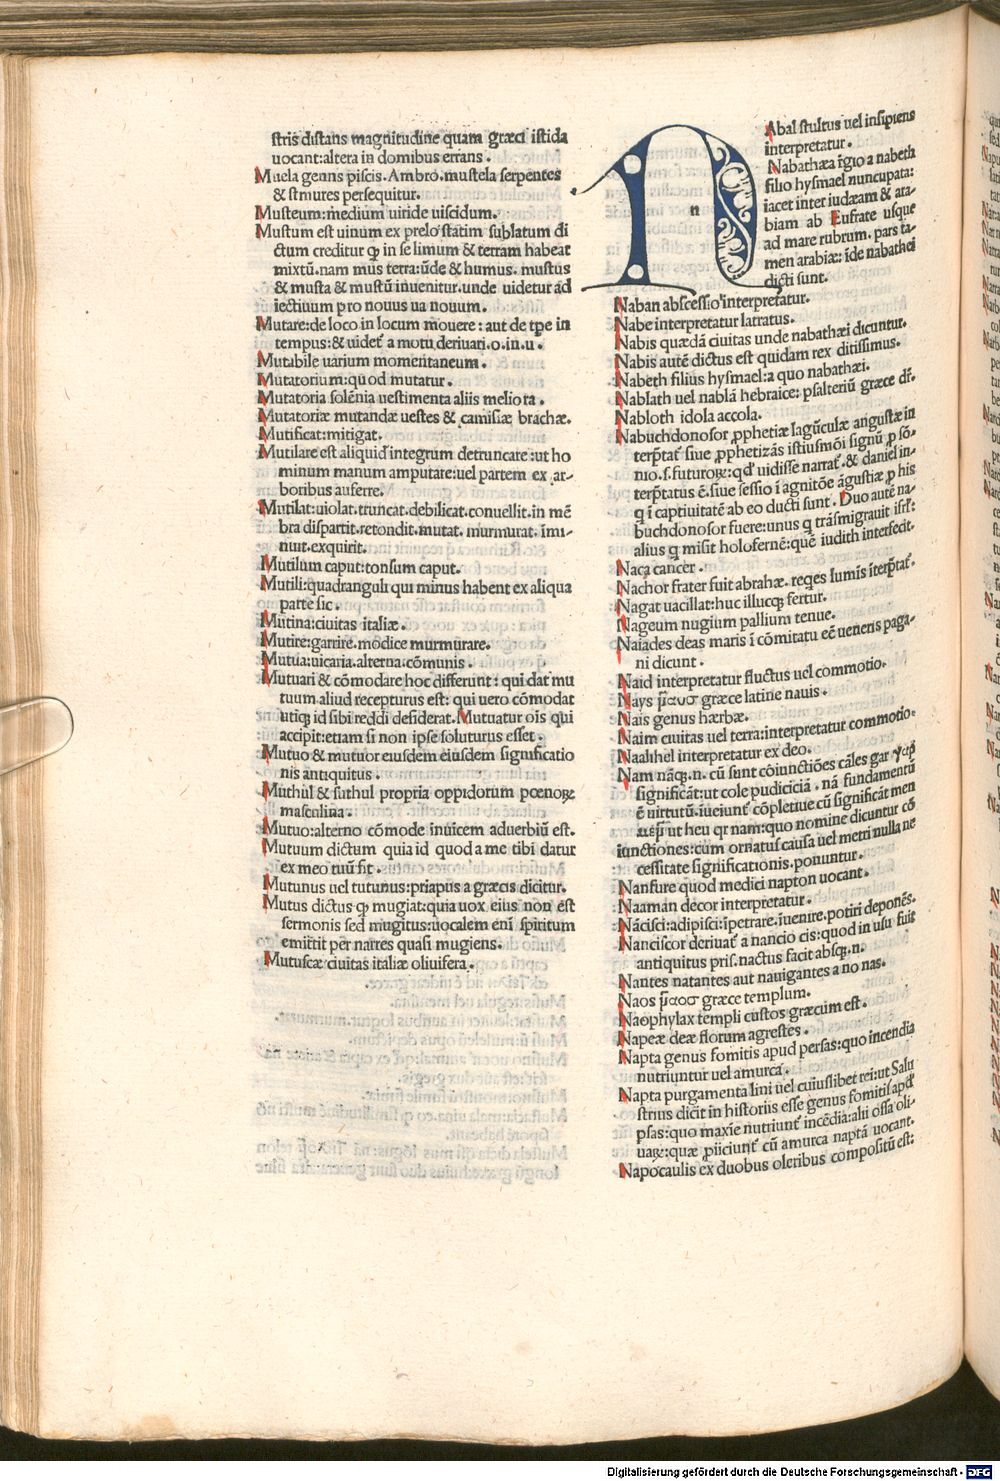 stris distans magnitudine quam græci istida
uocant:altera in domibus errans.
Muela genus piscis. Ambro. mustela serpentes
& stmures persequitur.
Musteum:medium uiride uiscidum.
Mustum est uinum ex prelo statim sublatum di
ctum creditur ꝙ in se limum & terram habeat
mixtū. nam mus terra:ūde & humus. mustus
& musta & mustū inuenitur. unde uidetur ad
iectiuum pro nouus ua nouum.
Mutare:de loco in locum mouere: aut de tpe in
tempus:& uidet a motu deriuari.o.in.u.
Mutabile uarium momentaneum.
Mutatorium:quod mutatur.
Mutatoria solēnia uestimenta aliis meliora.
Mutatoriæ mutandæ uestes & camisiæ brachæ.
Mutificat:mitigat.
Mutilare est aliquid integrum detruncare:ut ho
minum manum amputare:uel partem ex ar-
boribus auferre.
Mutilat:uiolat.truncat.debilicat.conuellit.in mē
bra dispartit.retondit.mutat. murmurat. īmi-
nuit.exquirit.
Mutilum caput:tonsum caput.
Mutili:quadranguli qui minus habent ex aliqua
parte sic.
Mutina:ciuitas italiæ.
Mutire:garrire.modice murmurare.
Mutua:uicaria.alterna.cōmunis.
Mutuari & cōmodare hoc differunt: qui dat mu
tuum aliud recepturus est: qui uero cōmodat
utiqꝫ id sibi reddi desiderat. Mutuatur ois qui
accipit:etiam si non ipse soluturus esset.
Mutuo & mutuor eiusdem eiusdem significatio
nis antiquitus.
Muthul & suthul propria oppidorum pœnoꝝ
masculina.
Mutuo:alterno cōmode inuicem aduerbiū est.
Mutuum dictum quia id quod a me tibi datur
ex meo tuū fit.
Mutunus uel tutunus:priapus a græcis dicitur.
Mutus dictus ꝙ mugiat:quia uox eius non est
sermonis sed mugitus:uocalem enī spiritum
emittit per narres quasi mugiens.
Mutuscæ ciuitas italiæ oliuifera.
n
Abal stultus uel insipiens
interpretatur.
Nabathæa rēgio a nabeth
filio hysmael nuncupata:
iacet inter iudæam & ara-
biam ab Eufrate usque
ad mare rubrum. pars ta-
men arabiæ: īde nabathei
dicti sunt.
Naban abscessio interpretatur.
Nabe interpretatur latratus.
Nabis quædā ciuitas unde nabathæi dicuntur.
Nabis autē dictus est quidam rex ditissimus.
Nabeth filius hysmael:a quo nabathæi.
Nablath uel nablā hebraice: psalteriū græce dr̄.
Nabloth idola accola.
Nabuchdonosor ꝓphetiæ lagūculæ angustæ in
terp̄tat siue ꝓphetizās istiusmōi signū ꝑ sō-
nio.s.futuroꝝ:qd uidisse narrat.& daniel in-
terp̄tatus ē. siue sessio ī agnitōe āgustiæ ꝑ his
q ī captiuitatē ab eo ducti sunt. Duo autē na-
buchdonosor fuere:unus q trāsmigrauit isrl:
alius q misit holofernē:quē iudith interfecit.
Naca cancer.
Nachor frater fuit abrahæ. reqes lumīs īterp̄tat.
Nagat uacillat:huc illucqꝫ fertur.
Nageum nugium pallium tenue.
Naiades deas maris ī cōmitatu eē ueneris paga-
ni dicunt.
Naid interpretatur fluctus uel commotio.
Nays græce latine nauis.
Nais genus hærbæ.
Naim ciuitas uel terra:interpretatur commotio.
Naalihel interpretatur ex deo.
Nam nāqꝫ.n. cū sunt cōiunctiōes cāles gar
significāt:ut cole pudiciciā. nā fundamentū
ē uirtutū.iueiunt cōpletiue cū significāt men
ut heu qr nam:quo nomine dicuntur cō
iunctiones:cum ornatus causa uel metri nulla ne
cessitate significationis.ponuntur.
Nansure quod medici napton uocant.
Naaman decor interpretatur.
Nācisci:adipisci:īpetrare.īuenire.potiri deponēs.
Nanciscor deriuat a nancio cis:quod in usu fuit
antiquitus pris. nactus facit absqꝫ.n.
Nantes natantes aut nauigantes a no nas.
Naos græce templum.
Naophylax templi custos græcum est.
Napeæ deæ florum agrestes.
Napta genus fomitis apud persas:quo incendia
nutriuntur uel amurca.
Napta purgamenta lini uel cuiuslibet rei:ut Salu
strius dicit in historiis esse genus fomitis apd
psas:quo maxīe nutriunt incēdia:alii ossa oli-
uaꝝ:quæ ꝓiiciunt cū amurca naptā uocant.
Napocaulis ex duobus oleribus compositū est:
Digitalisierung gefördert durch die Deutsche Forschungsgemeinschaft - DFG